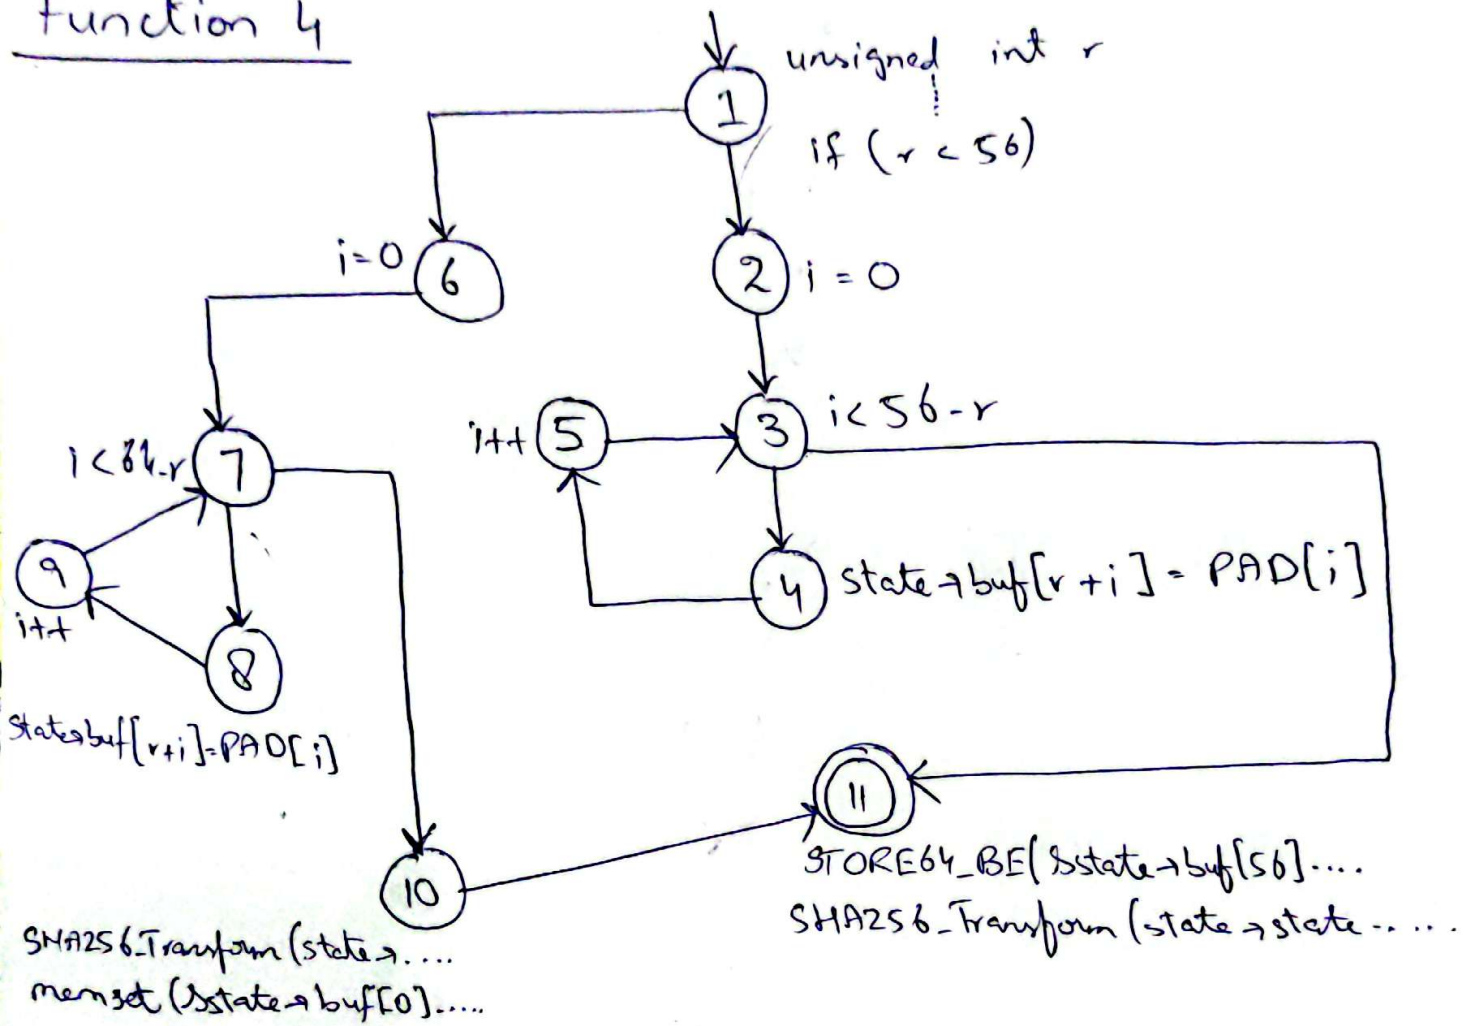 Function 4
unsigned int r
1
if (r < 56)
i=0
6
2
i = 0
i++
5
3
i<56-r
i<64-r
7
9
i++
4
state→buf[r+i] = PAD[i]
8
state→buf[r+i]=PAD[i]
11
10
STORE64_BE(&state→buf[56]....
SHA256_Transform(state→state......
SHA256_Transform(state→....
memset(&state→buf[0].....